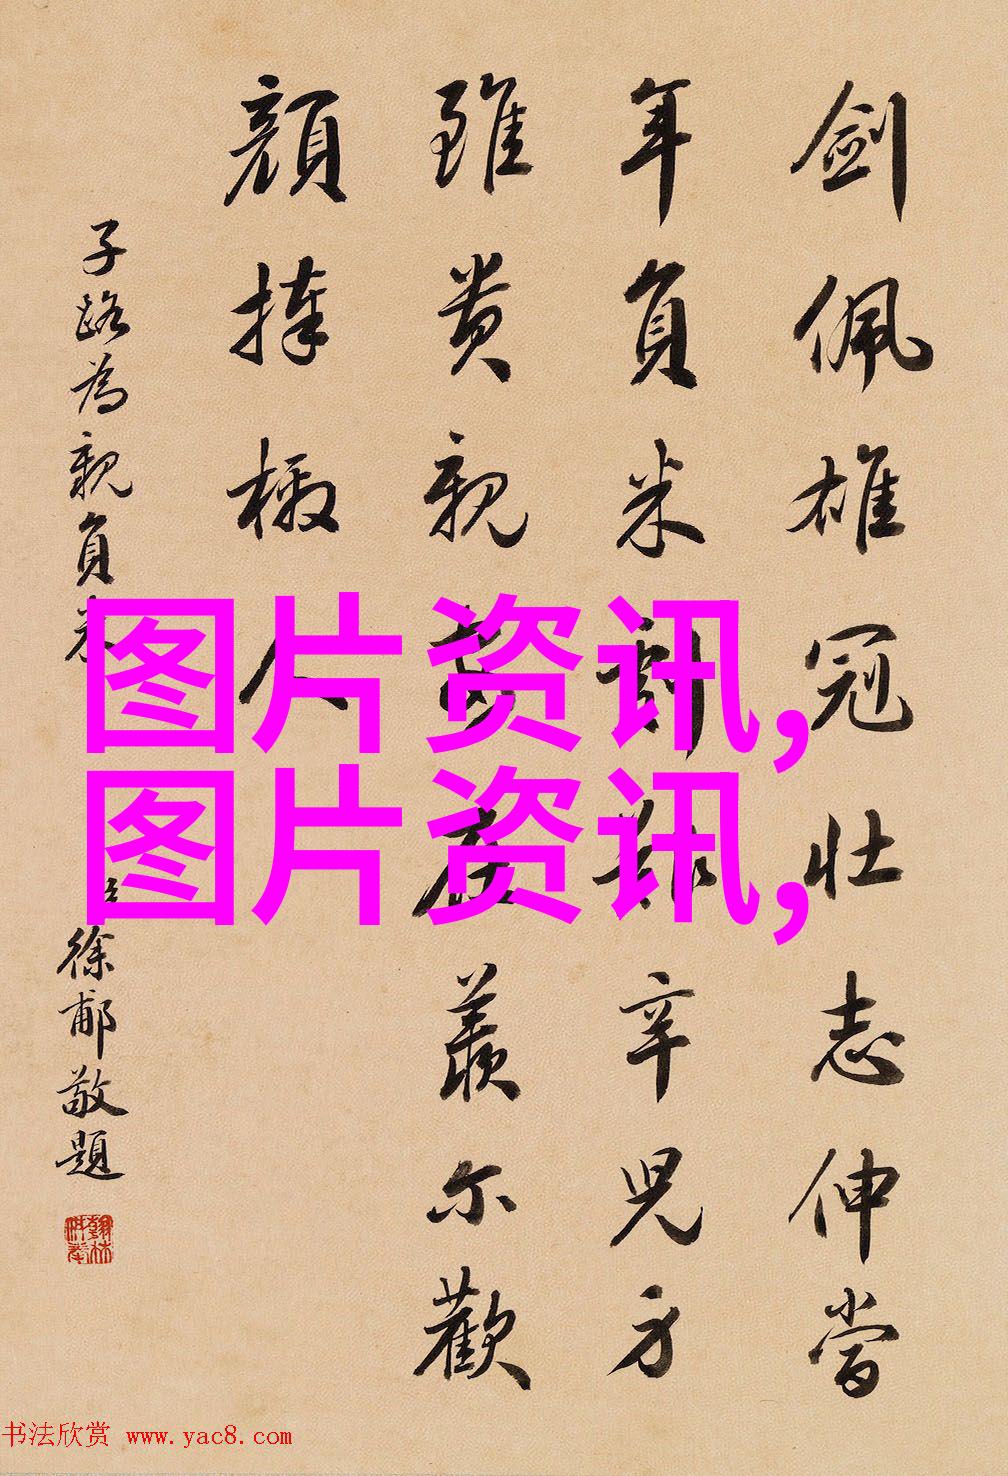 劍佩雄冠壮志伸當
年負米艱辛兒方
雖貴親羨尔歡
顔捧檄人
子路為親負米
徐郙敬題
图片资讯,
图片资讯,
书法欣赏 www.yac8.com